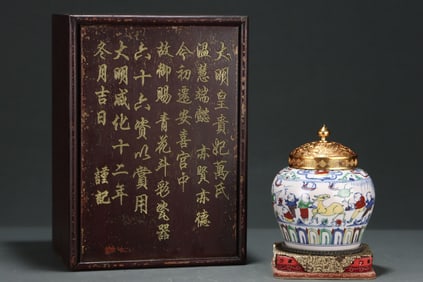 大明皇貴妃萬氏
溫慧端懿亦賢亦德
今初遷安喜宮中
故御賜青花斗彩瓷器
六十六賞以賞用
大明成化十二年
冬月吉日 謹記